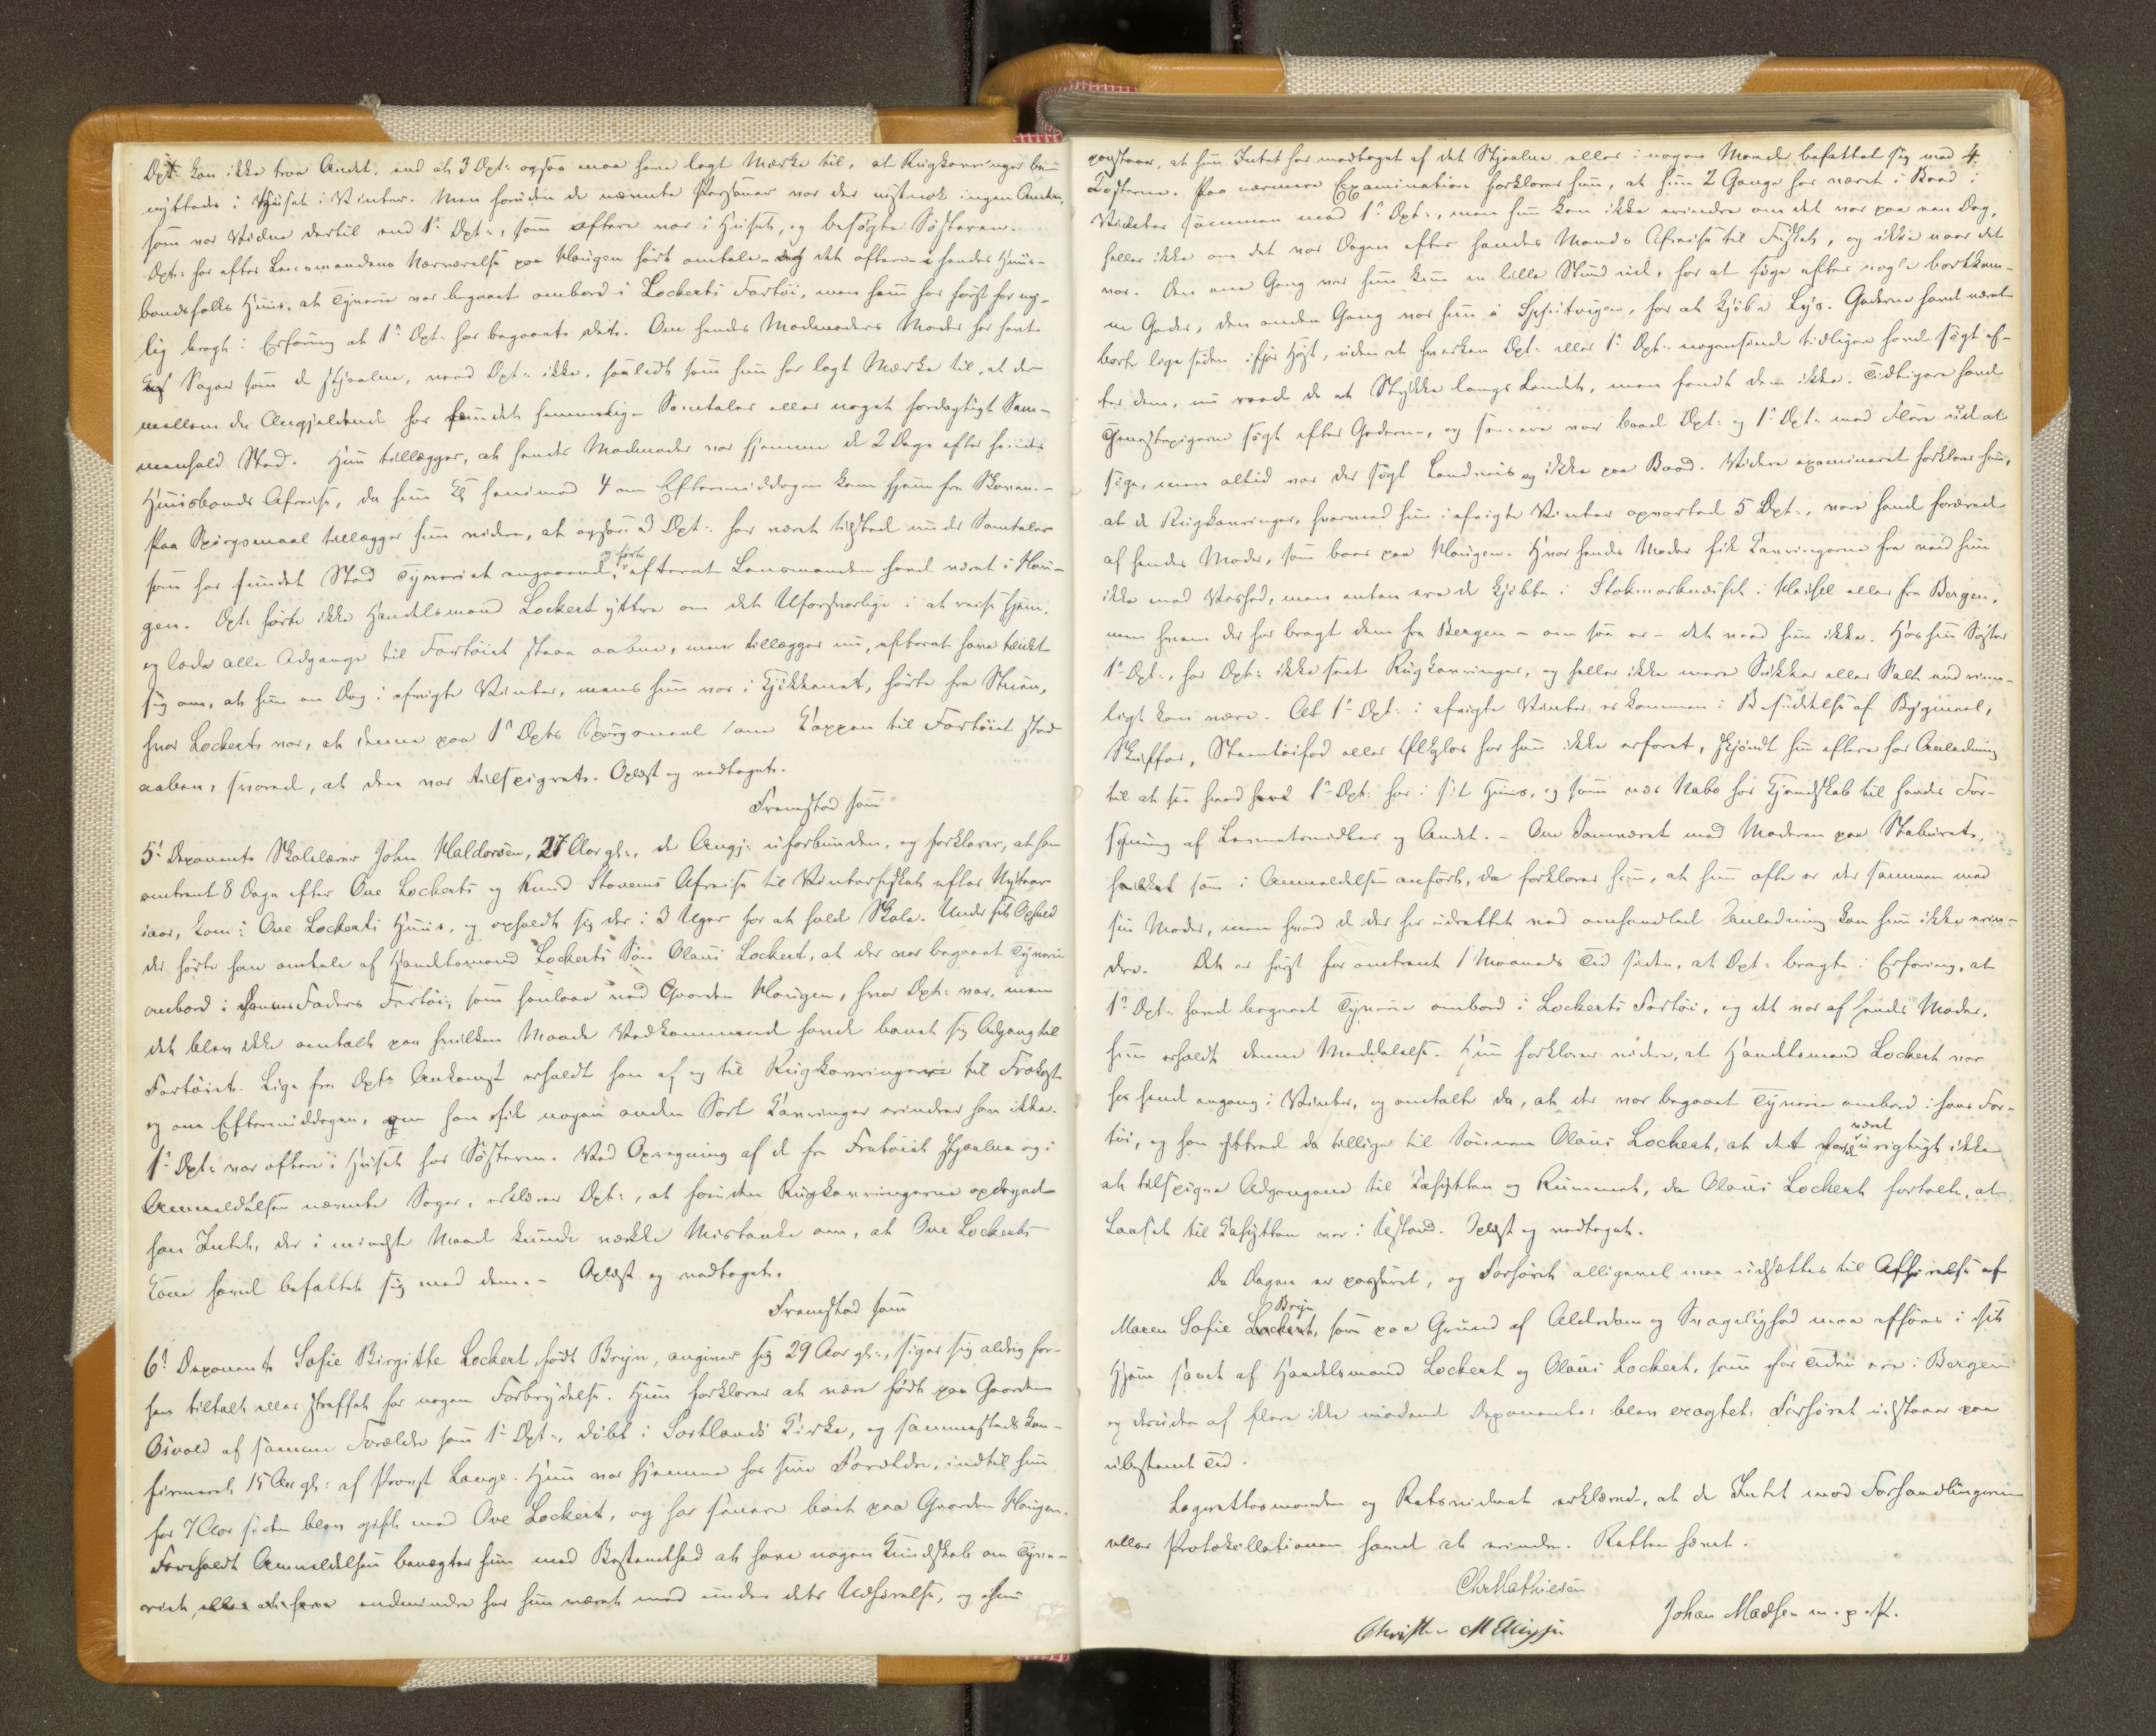 Dpt. kan ikke troe Andet, end at 3 Dpt: ogsaa maa have lagt Mærke til, at Rugkavringer be-
nyttedes i Huset i Vinter. Men foruden de nævnte Personer var der vistnok ingen Anden,
som var Vidne dertil end 1ste Dpt:, som oftere var i Huset, og besøgte Søsteren.
Dpt: har efter Lensmandens Nærværelse paa Haugen hørt omtale det oftere i hendes Huus-
bondsfolks Huus, at Tyverie var begaaet ombord i Lockerts Fartøi, men hun har først for ny-
lig bragt i Erfaring at 1ste Dpt: har begaaet det. Om hendes Madmoders Moder har havt
Sager som de stjaalne, veed Dpt: ikke, saalidt som hun har lagt Mærke til, at der
mellem de Angjeldende har fundet hemmelige Samtaler eller noget fordægtigt Sam-
menhold Sted. Hun tillægger, at hendes Madmoder var hjemme de 2 Dage efter hendes
Huusbonds Afreise, da hun henimod 4 om Eftermiddagen kom hjem fra Skoven.
Paa Spørgsmaal tillægger hun videre, at ogsaa 3 Dpt: har været tilstede under Samtaler
som har fundet Sted Tyveriet angaaende, og først efterat Lensmanden havde været i Hau-
gen. Dpt: hørte ikke Handelsmand Lockert yttre om det Uforsvarlige i at reise hjem,
og lade alle Adgange til Fartøiet staae aabne, men tillægger nu, efterat have tænkt
sig om, at hun en Dag i afvigte Vinter, mens hun var i Kjøkkenet, hørte fra Stuen,
hvor Lockert var, at denne paa 1ste Dpts Spørgsmaal om Kappen til Fartøiet stod
aaben, svarede, at den var tilspigret. Oplæst og vedtaget.
Fremstod som
5te Deponent Skolelærer John Haldorsen, 27 Aar gl:, de Angj: uforbunden, og forklarer, at han
omtrent 8 Dage efter Ove Lockerts og Knud Stovens Afreise til Vinterfisket efter Nytaar
iaar, kom i Ove Lockerts Huus, og opholdt sig der i 3 Uger for at holde Skole. Under sit Ophold
der hørte han omtale af Handelsmand Lockerts Søn Olaus Lockert, at der var begaaet Tyverie
ombord i hans Faders Fartøi, som henlaae ved Gaarden Haugen, hvor Dpt: var, men
det blev ikke omtalt paa hvilken Maade Vedkommende havde banet sig Adgang til
Fartøiet. Lige fra Dpts Ankomst erholdt han af og til Rugkavringer til Frokost
og om Eftermiddagen, om han fik nogen anden Sort Kavringer erindrer han ikke.
1ste Dpt: var oftere i Huset hos Søsteren. Ved Opregning af de fra Fartøiet stjaalne og i
Anmeldelsen nævnte Sager, erklærer Dpt:, at foruden Rugkavringerne opdagede
han Intet, der i mindste Maade kunde vække Mistanke om, at Ove Lockerts
Kone havde befattet sig med dem. – Oplæst og vedtaget.
Fremstod som
6te Deponent Sofie Birgitte Lockert, født Bryn, angiver sig 29 Aar gl:, siger sig aldrig for-
hen tiltalt eller straffet for nogen Forbrydelse. Hun forklarer at være født paa Gaarden
Osvold af samme Forældre som 1ste Dpt:, døbt i Sortlands Kirke, og sammesteds kon-
firmeret 15 Aar gl: af Provst Lange. Hun var hjemme hos sine Forældre, indtil hun
for 7 Aar siden blev gift med Ove Lockert, og har senere boet paa Gaarden Haugen.
Foreholdt Anmeldelsen benægter hun med Bestemthed at have nogen Kundskab om Tyve-
riet, eller at have endmindre har hun været med under dets Udførelse, og hun
paastaaer, at hun Intet har modtaget af det Stjaalne eller i nogen Maade befattet sig med 4.
Kosterne. Paa nærmere Examination forklarer hun, at hun 2 Gange har været i Baad i
Vinter sammen med 1ste Dpt:, men hun kan ikke erindre om det var paa een Dag,
heller ikke om det var Dagen efter hendes Mands Afreise til Fisket, og ikke naar det
var. Den ene Gang var hun kun en lille Stund ude, for at søge efter nogle bortkom-
ne Geder, den anden Gang var hun i Spjutvigen, for at kjøbe Lys. Gederne havde været
borte lige siden ifjor Høst, uden at hverken Dpt: eller 1ste Dpt: nogensinde tidligere havde søgt ef-
ter dem, nu roede de et Stykke langs Landet, men fandt dem ikke. Tidligere havde
Tjenestepigerne søgt efter Gederne, og senere var baade Dpt: og 1ste Dpt: med Flere ude at
søge, men altid var der søgt Landveis og ikke paa Baad. Videre examineret forklarer hun,
at de Rugkavringer, hvormed hun i afvigte Vinter opvartede 5 Dpt:, vare hende forærede
af hendes Moder, som boer paa Haugen. Hvor hendes Moder fik Kavringerne fra veed hun
ikke med Vished, men enten ere de kjøbte i Stokmarknæs eller fra Bergen,
men hvem der har bragt dem fra Bergen – om saa er – det veed hun ikke. Hos hun Søster
1ste Dpt:, har Dpt: ikke seet Rugkavringer, og heller ikke mere Sukker eller Salt end rime-
ligt kan være. At 1ste Dpt: i afvigte Vinter er kommen i Besiddelse af Bygmeel,
Skuffer, Steentøifad eller Ølglas har hun ikke erfaret, skjøndt hun oftere har Anledning
til at see hvad 1ste Dpt: har i sit Huus, og som nær Nabo har Kjendskab til hendes For-
syning af Levnetsmidler og Andet. – Om Samværet med Moderen paa Staburet,
hvilket som i Anmeldelsen anført, da forklarer hun, at hun ofte er der sammen med
sin Moder, men hvad de der har udrettet ved omhandlede Anledning kan hun ikke erin-
dre. Det er først for omtrent 1 Maaneds Tid siden, at Dpt: bragte i Erfaring, at
1ste Dpt: havde begaaet Tyverie ombord i Lockerts Fartøi, og det var af hendes Moder,
hun erholdt denne Meddelelse. Hun forklarer videre, at Handelsmand Lockert var
hos hende engang i Vinter, og omtalte da, at der var begaaet Tyverie ombord i hans Far-
tøi, og han yttrede da tillige til Sønnen Olaus Lockert, at det havde været urigtigt ikke
at tilspigre Adgangene til Kahytten og Rummet, da Olaus Lockert fortalte, at
Laaset til Kahytten var i Ustand. Oplæst og vedtaget.
Da Dagen er passeret, og Forhøret alligevel maa udsættes til Afhørelse af
Maren Sofie Lockert Bryn, som paa Grund af Alderdom og Svagelighed maa afhøres i sit
Hjem samt af Handelsmand Lockert og Olaus Lockert, som for Tiden ere i Bergen
og desuden af flere ikke mødende Deponenter blev eragtet: Forhøret udstaaer paa
ubestemt Tid.
Lagrettesmanden og Retsvidnet erklærede, at de Intet mod Forhandlingerne
eller Protokollationen havde at erindre. Retten hævet.
Chr Mathiesen
Johan Madsen m. p. P.
Christen M Ellingsen